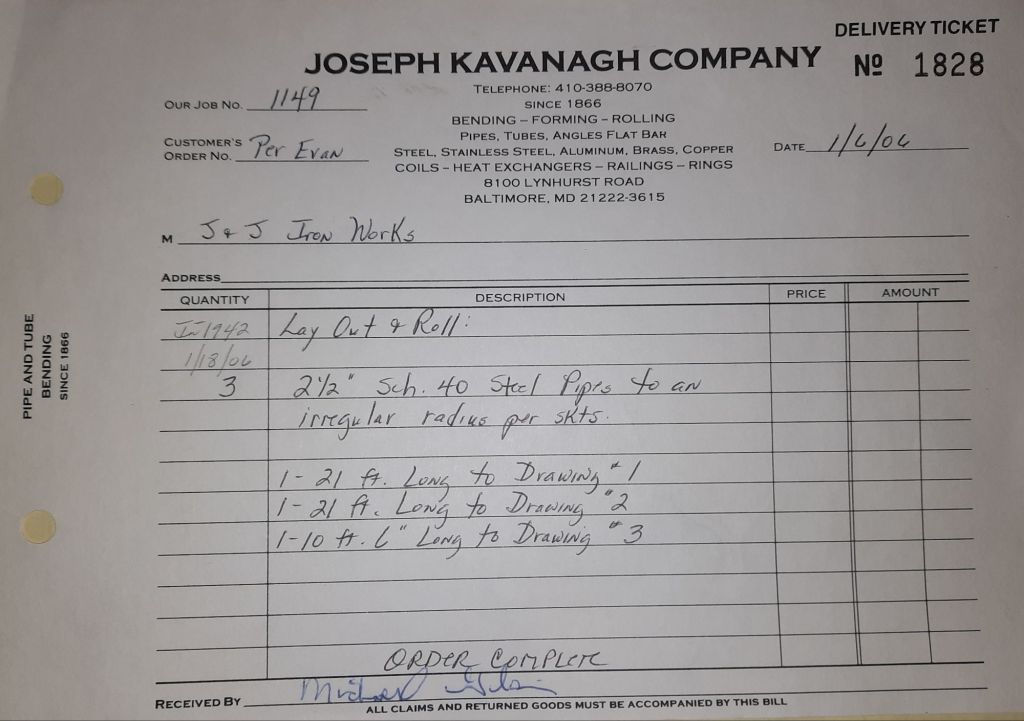 DELIVERY TICKET
JOSEPH KAVANAGH COMPANY
Nº 1828
TELEPHONE: 410-388-8070
SINCE 1866
BENDING – FORMING – ROLLING
PIPES, TUBES, ANGLES FLAT BAR
STEEL, STAINLESS STEEL, ALUMINUM, BRASS, COPPER
COILS – HEAT EXCHANGERS – RAILINGS – RINGS
8100 LYNHURST ROAD
BALTIMORE, MD 21222-3615
OUR JOB NO. 1149
CUSTOMER'S
ORDER NO. Per Evan
DATE 1/6/06
M J & J Iron Works
ADDRESS
QUANTITY DESCRIPTION PRICE AMOUNT
In 1942 Lay Out & Roll:
1/18/06
3 2 1/2" Sch. 40 Steel Pipes to an
irregular radius per skts.
1 - 21 ft. Long to Drawing #1
1 - 21 ft. Long to Drawing #2
1 - 10 ft. 6" Long to Drawing #3
ORDER COMPLETE
RECEIVED BY Michael
ALL CLAIMS AND RETURNED GOODS MUST BE ACCOMPANIED BY THIS BILL
PIPE AND TUBE
BENDING
SINCE 1866